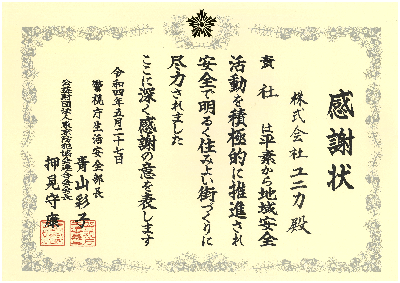 感謝状
株式会社ユニカ殿
貴社は平素から地域安全
活動を積極的に推進され
安全で明るく住みよい街づくりに
尽力されました
ここに深く感謝の意を表します
令和四年五月二十七日
警視庁生活安全部長
青山彩子
押見守康